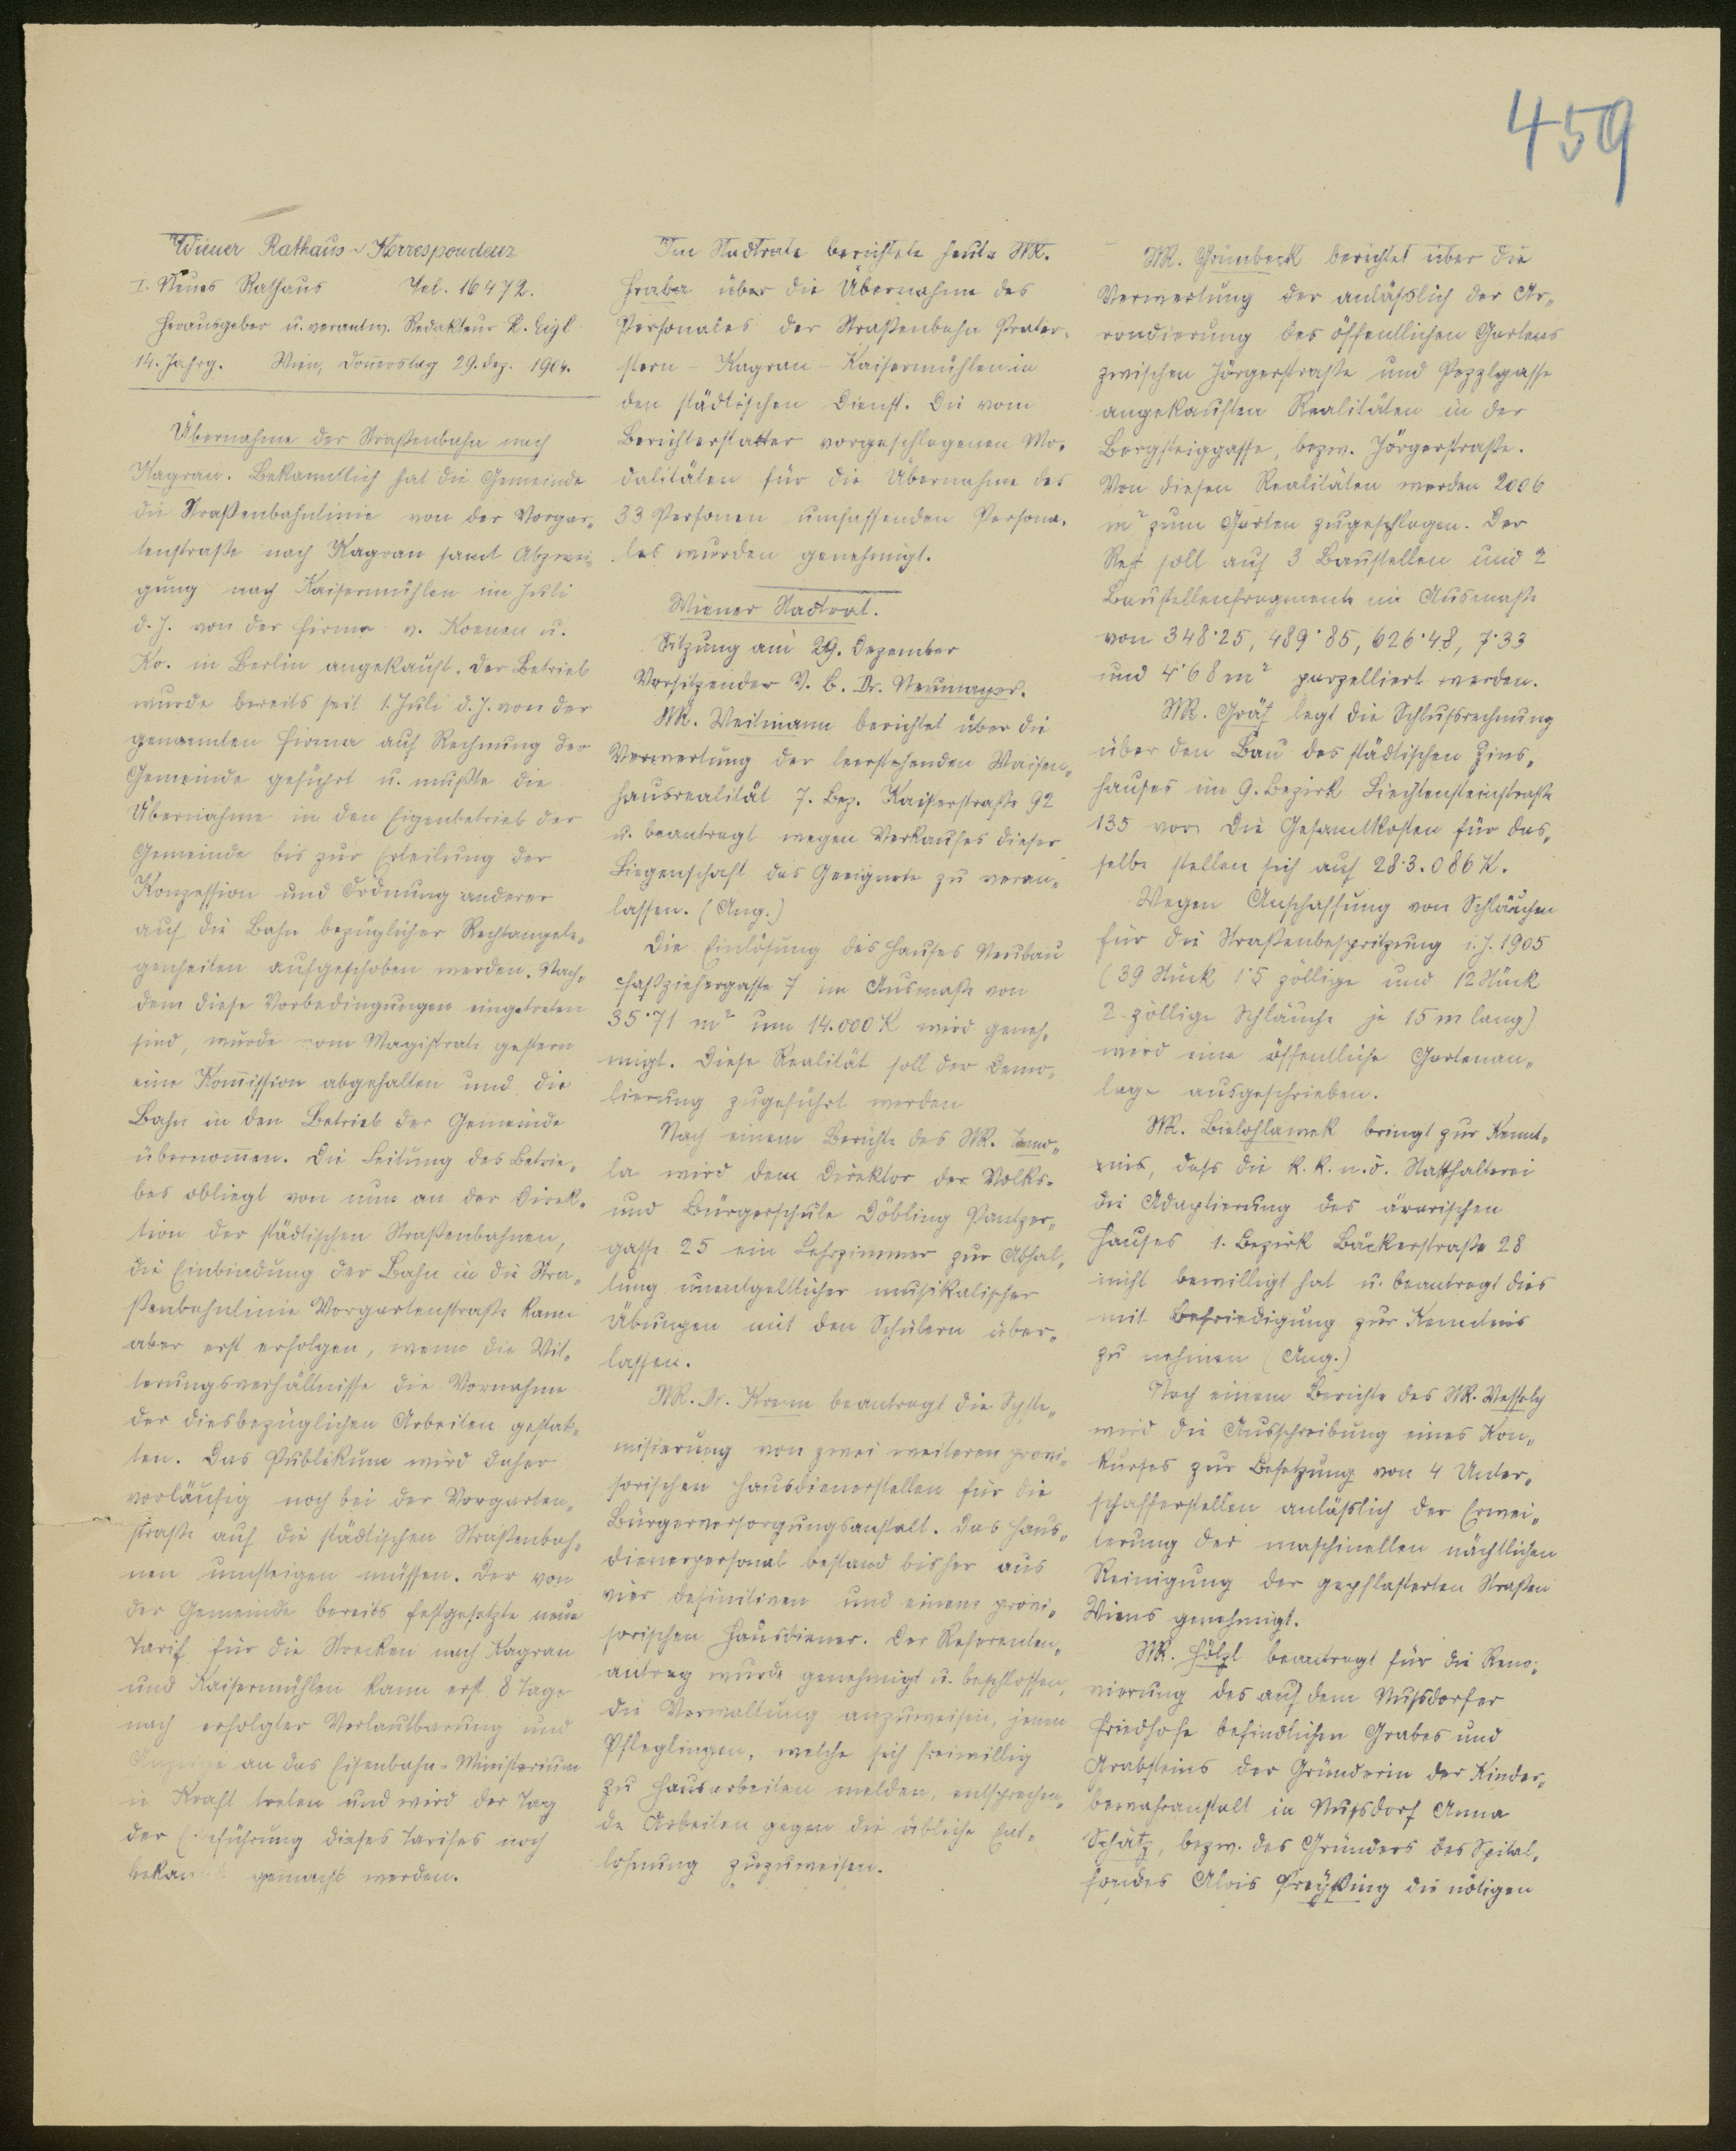 459
Wiener Rathaus-Korrespondenz
I. Neues Rathaus Tel. 16472.
Herausgeber u. verantw. Redakteur R. Eigl
14. Jahrg. Wien, Donnerstag 29. Dez. 1904.
Übernahme der Straßenbahn nach
Kagran. Bekanntlich hat die Gemeinde
die Straßenbahnlinie von der Vorgar-
tenstraße nach Kagran samt Abzwei-
gung nach Kaisermühlen im Juli
d. J. von der Firma v. Koenen u.
Ko. in Berlin angekauft. Der Betrieb
wurde bereits seit 1. Juli d. J. von der
genannten Firma auf Rechnung der
Gemeinde geführt u. mußte die
Übernahme in den Eigenbetrieb der
Gemeinde bis zur Erteilung der
Konzession und Ordnung anderer
auf die Bahn bezüglicher Rechtangele-
genheiten aufgeschoben werden. Nach-
dem diese Vorbedingungen eingetreten
sind, wurde vom Magistrate gestern
eine Kommission abgehalten und die
Bahn in den Betrieb der Gemeinde
übernommen. Die Leitung des Betrie-
bes obliegt von nun an der Direk-
tion der städtischen Straßenbahnen,
die Einbindung der Bahn in die Stra-
ßenbahnlinie Vorgartenstraße kann
aber erst erfolgen, wenn die Wit-
terungsverhältnisse die Vornahme
der diesbezüglichen Arbeiten gestat-
ten. Das Publikum wird daher
vorläufig noch bei der Vorgarten-
straße auf die städtischen Straßenbah-
nen umsteigen müssen. Der von
der Gemeinde bereits festgesetzte neue
Tarif für die Strecken nach Kagran
und Kaisermühlen kann erst 8 Tage
nach erfolgter Verlautbarung und
Anzeige an das Eisenbahn-Ministerium
in Kraft treten und wird der Tag
der Einführung dieses Tarifes noch
bekannt gemacht werden.
Im Stadtrate berichtete heute StR.
Hraba über die Übernahme des
Personales der Straßenbahn Prater-
stern - Kagran - Kaisermühlen in
den städtischen Dienst. Die vom
Berichterstatter vorgeschlagenen Mo-
dalitäten für die Übernahme des
33 Personen umfassenden Persona-
les wurden genehmigt.
Wiener Stadtrat.
Sitzung am 29. Dezember
Vorsitzender V. B. Dr. Neumayer.
StR. Weitmann berichtet über die
Verwertung der leerstehenden Waisen-
hausrealität 7. Bez. Kaiserstraße 92
u. beantragt wegen Verkaufes dieser
Liegenschaft das Geeignete zu veran-
lassen. (Ang.)
Die Einlösung des Hauses Neubau
Faßziehergasse 7 im Ausmaße von
35·71 m² um 14.000 K wird geneh-
migt. Diese Realität soll der Demo-
lierung zugeführt werden
Nach einem Berichte des StR. Tomo-
la wird dem Direktor der Volks-
und Bürgerschule Döbling Pantzer-
gasse 25 ein Lehrzimmer zur Abhal-
tung unentgeltlicher musikalischer
Übungen mit den Schülern über-
lassen.
StR. Dr. Krenn beantragt die Syste-
misierung von zwei weiteren provi-
sorischen Hausdienerstellen für die
Bürgerversorgungsanstalt. Das Haus-
dienerpersonal bestand bisher aus
vier definitiven und einem provi-
sorischen Hausdiener. Der Referenten-
antrag wurde genehmigt u. beschlossen,
die Verwaltung anzuweisen, jenen
Pfleglingen, welche sich freiwillig
zu Hausarbeiten melden, entsprechen-
de Arbeiten gegen die übliche Ent-
lohnung zuzuweisen.
StR. Grünbeck berichtet über die
Verwertung der anläßlich der Ar-
rondierung des öffentlichen Gartens
zwischen Jörgerstraße und Pezzlgasse
angekauften Realitäten in der
Bergsteiggasse, bezw. Jörgerstraße.
Von diesen Realitäten werden 2006
m² zum Garten zugeschlagen. Der
Rest soll auf 3 Baustellen und 2
Baustellenfragmente im Ausmaße
von 348·25, 489·85, 626·48, 7·33
und 4·68 m² parzelliert werden.
StR. Gräf legt die Schlußrechnung
über den Bau des städtischen Zins-
hauses im 9. Bezirk Liechtensteinstraße
135 vor. Die Gesamtkosten für das-
selbe stellen sich auf 283.086 K.
Wegen Anschaffung von Schläuchen
für die Straßenbespritzung i. J. 1905
(39 Stück 1·5 zöllige und 12 Stück
2-zöllige Schläuche je 15 m lang)
wird eine öffentliche Gartenan-
lage ausgeschrieben.
StR. Bielohlawek bringt zur Kennt-
nis, daß die k. k. n. ö. Statthalterei
die Adaptierung des ärarischen
Hauses 1. Bezirk Bäckerstraße 28
nicht bewilligt hat u. beantragt dies
mit Befriedigung zur Kenntnis
zu nehmen (Ang.)
Nach einem Berichte des StR. Wessely
wird die Ausschreibung eines Kon-
kurses zur Besetzung von 4 Unter-
schafferstellen anläßlich der Erwei-
terung der maschinellen nächtlichen
Reinigung der gepflasterten Straßen
Wiens genehmigt.
StR. Hölzl beantragt für die Reno-
vierung des auf dem Nußdorfer
Friedhofe befindlichen Grabes und
Grabsteins der Gründerin der Kinder-
bewahranstalt in Nußdorf Anna
Schätz, bezw. des Gründers des Spital-
fondes Alois Preyßing die nötigen